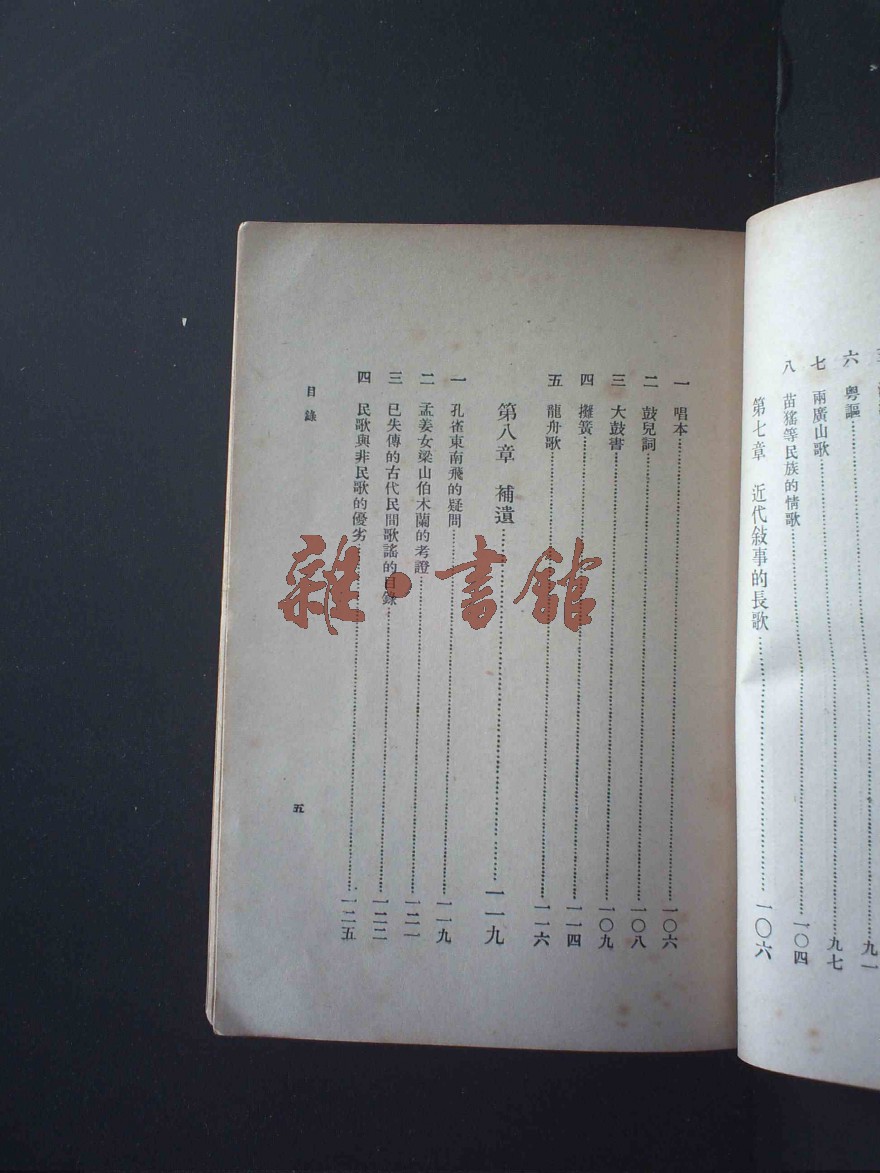 六 粵謳 九一
七 兩廣山歌 九七
八 苗猺等民族的情歌 一〇四
第七章 近代敍事的長歌 一〇六
一 唱本 一〇六
二 鼓兒詞 一〇八
三 大鼓書 一〇九
四 攤簧 一一四
五 龍舟歌 一一六
第八章 補遺 一一九
一 孔雀東南飛的疑問 一一九
二 孟姜女梁山伯木蘭的考證 一二一
三 已失傳的古代民間歌謠的目錄 一二二
四 民歌與非民歌的優劣 一二五
目錄
五
雜·書館